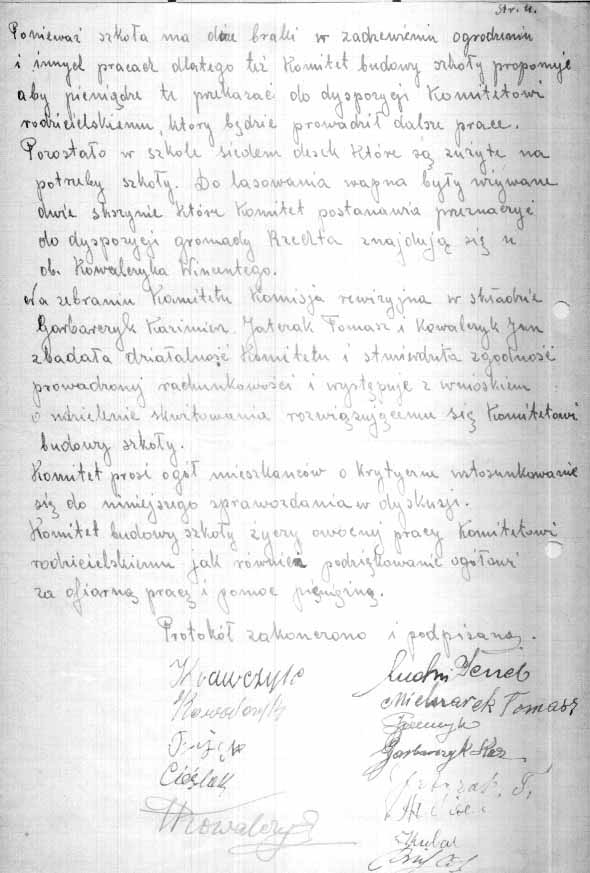 Str. 4.
Ponieważ szkoła ma duże braki w zadrzewieniu ogrodzeniu
i innych pracach dlatego też Komitet budowy szkoły proponuje
aby pieniądze te przekazać do dyspozycji Komitetowi
rodzicielskiemu, który będzie prowadził dalsze prace.
Pozostało w szkole siedem desek które są zużyte na
potrzeby szkoły. Do lasowania wapna były używane
dwie skrzynie które Komitet postanawia przeznaczyć
do dyspozycji gromady Rzechta znajdują się u
ob. Kowalczyka Wincentego.
Na zebraniu Komitetu Komisja rewizyjna w składzie
Garbarczyk Kazimierz Jaterak Tomasz i Kowalczyk Jan
zbadała działalność Komitetu i stwierdziła zgodność
prowadzonej rachunkowości i występuje z wnioskiem
o udzielenie skwitowania rozwiązującemu się Komitetowi
budowy szkoły.
Komitet prosi ogół mieszkańców o krytyczne ustosunkowanie
się do niniejszego sprawozdania w dyskusji.
Komitet budowy szkoły życzy owocnej pracy Komitetowi
rodzicielskiemu jak również podziękowanie ogółowi
za ofiarną pracę i pomoc pieniężną.
Protokół zakończono i podpisano.
Krawczyk
Kowalczyk
Cieślak
Kowalczyk
Mielczarek Tomasz
Garbarczyk Kaz